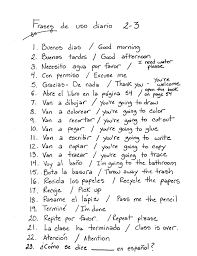 Frases de uso diario 2-3
1. Buenos días / Good morning
2. Buenas tardes / Good afternoon
3. Necesito agua por favor / I need water please
4. Con permiso / Excuse me
5. Gracias - De nada / Thank you - you're welcome
6. Abre el libro en la página 54 / open the book on page 54
7. Van a dibujar / you're going to draw
8. Van a colorear / you're going to color
9. Van a recortar / you're going to cut out
10. Van a pegar / you're going to glue
11. Van a escribir / you're going to write
12. Van a copiar / you're going to copy
13. Van a trazar / you're going to trace
14. Voy al baño / I'm going to the bathroom
15. Bota la basura / Throw away the trash
16. Recicla los papeles / Recycle the papers
17. Recoge / Pick up
18. Pásame el lápiz / Pass me the pencil
19. Terminé / I'm done
20. Repite por favor. / Repeat please
21. La clase ha terminado / Class is over.
22. Atención / Attention
23. ¿Cómo se dice ____ en español?